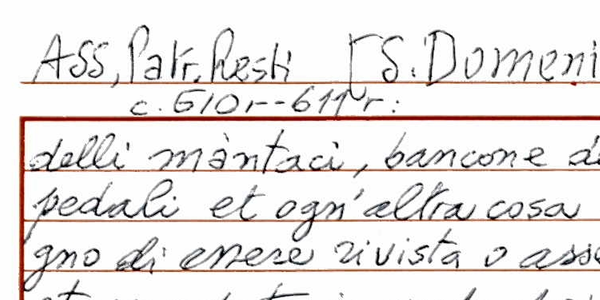 Ass, Patr. Resti [S. Domeni
c. 510r-611r:
delli màntaci, bancone d
pedali et ogn'altra cosa
gno di essere rivista o ass